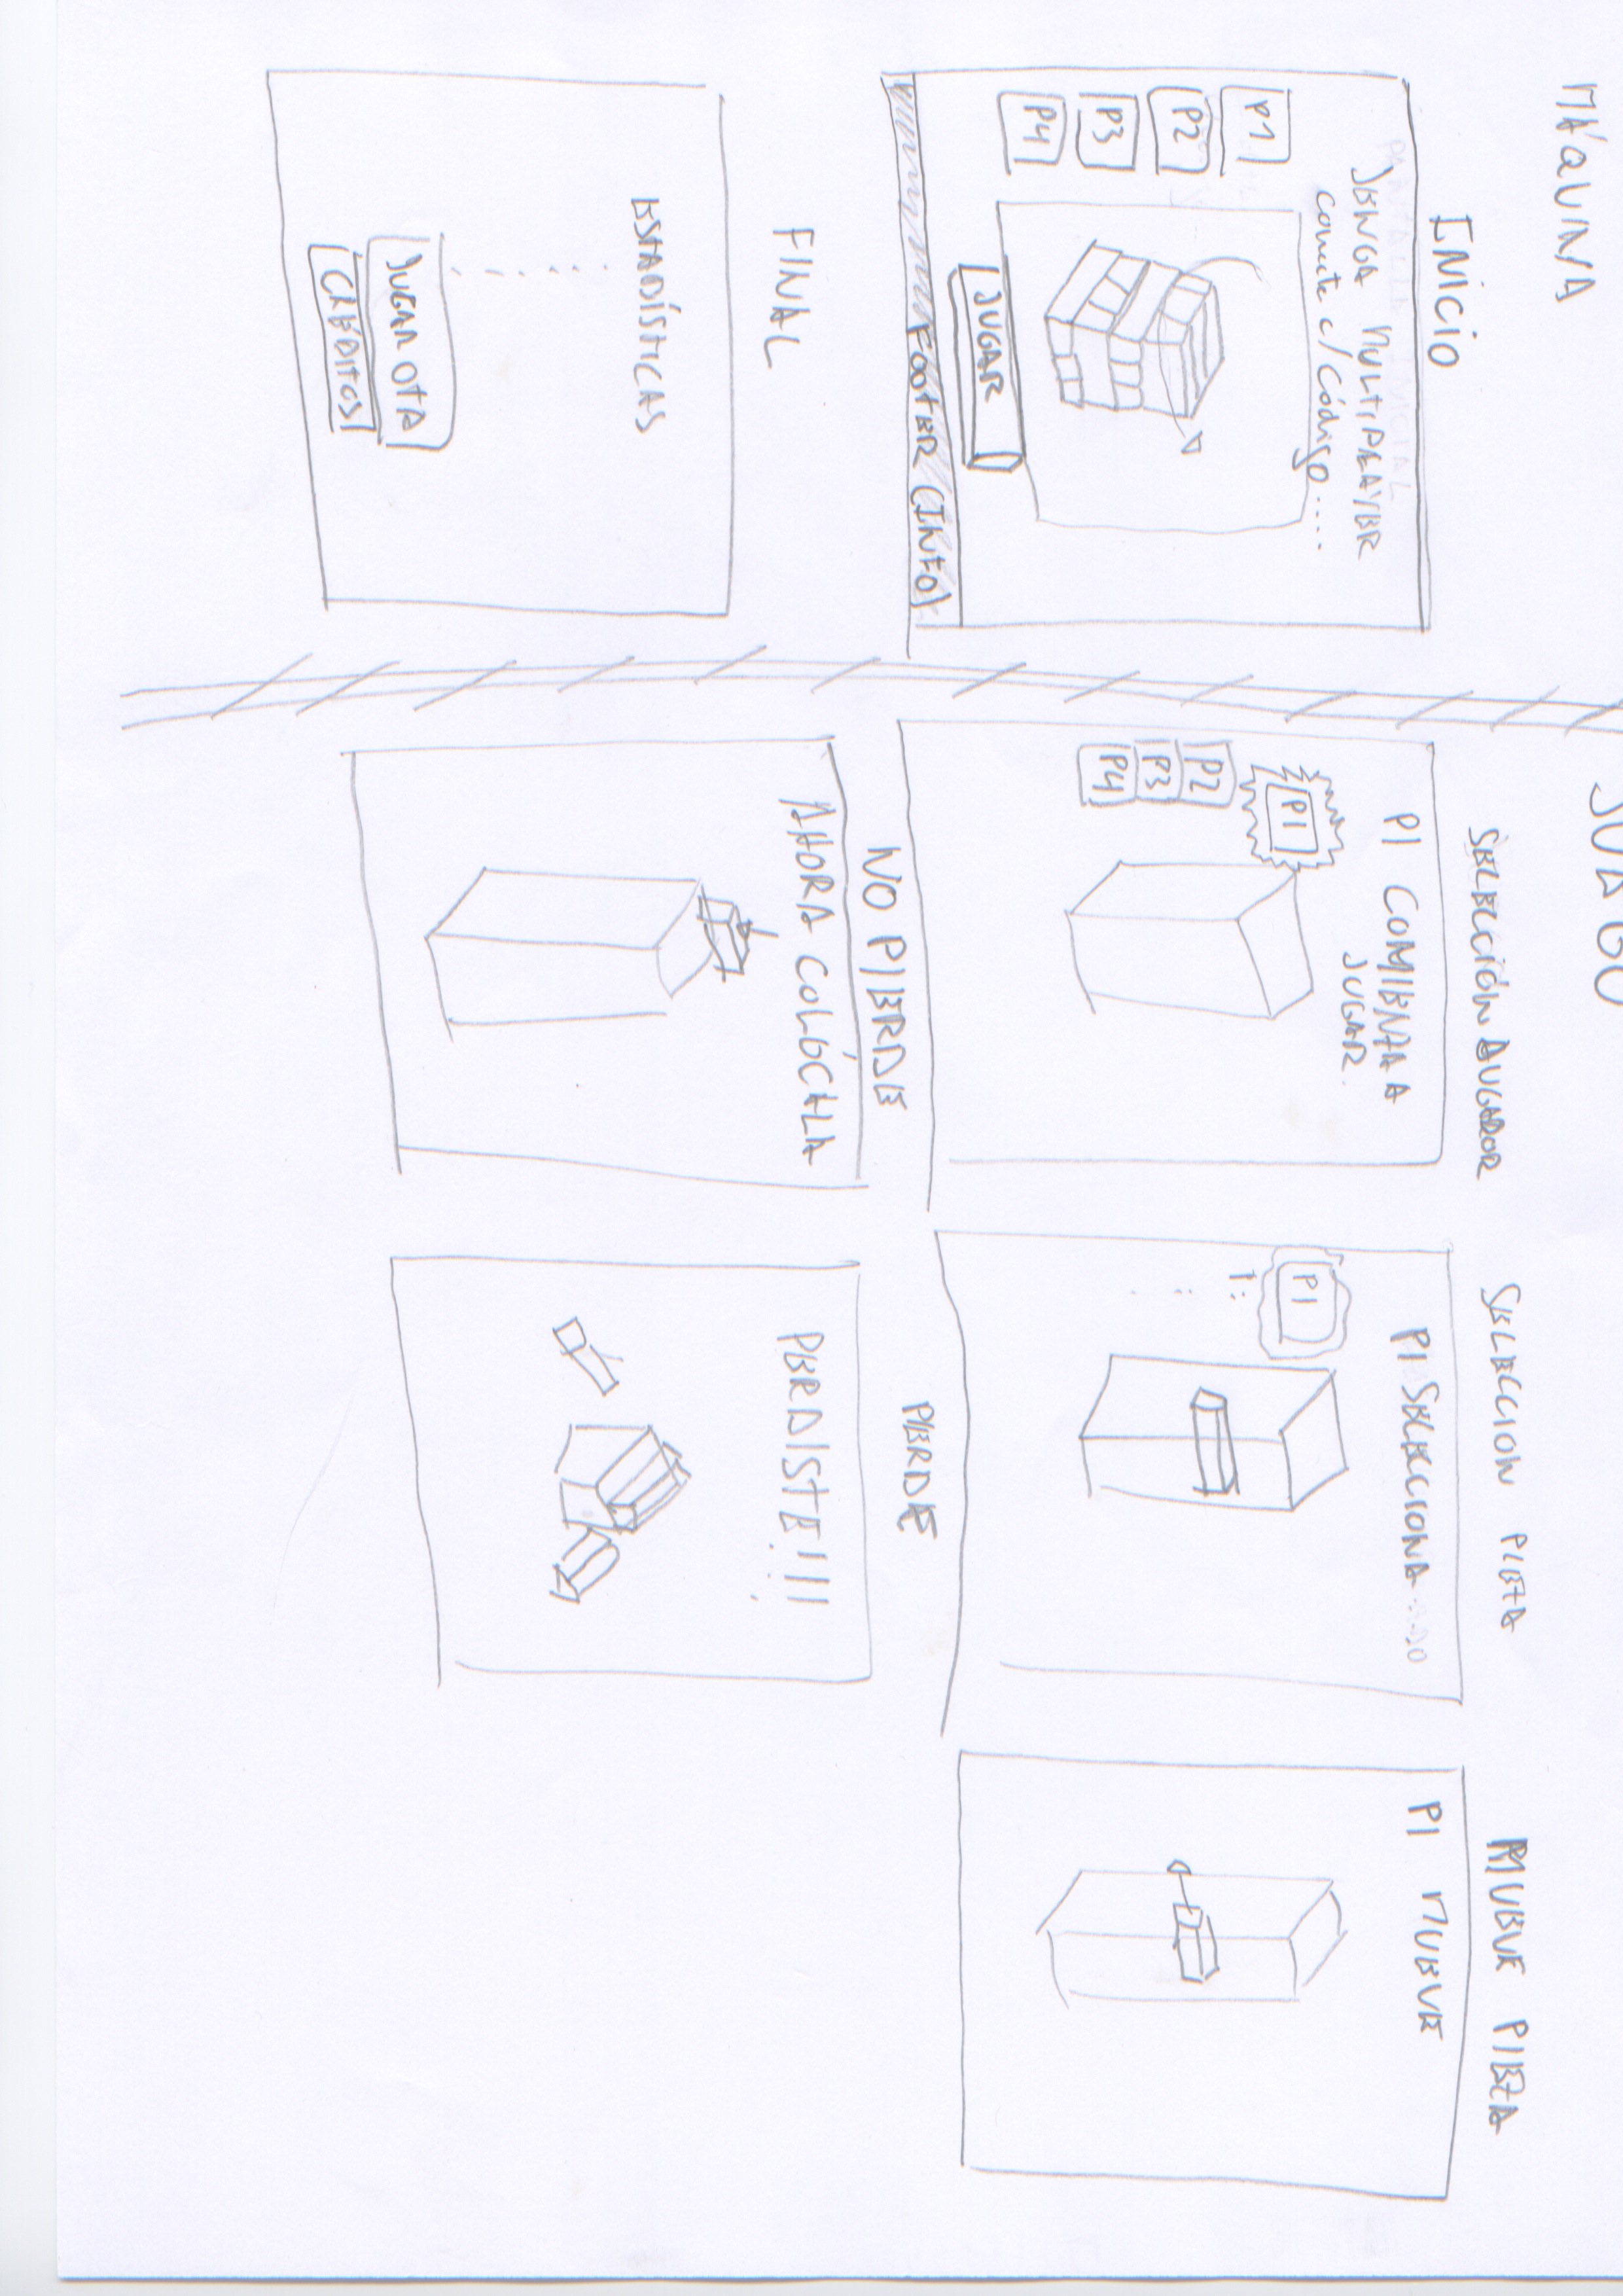 MÁQUINA
INICIO
JENGA MULTIPLAYER
conecte c/código.....
P1
P2
P3
P4
JUGAR
FOOTER (INFO)
FINAL
ESTADÍSTICAS
JUGAR OTA
CRÉDITOS
JUEGO
SELECCIÓN JUGADOR
P1 COMIENZA A
JUGAR.
P1
P2
P3
P4
SELECCION PIEZA
P1 SELECCIONA
P1
MUEVE PIEZA
P1 MUEVE
NO PIERDE
AHORA COLÓCALA
PIERDE
PERDISTE!!!!